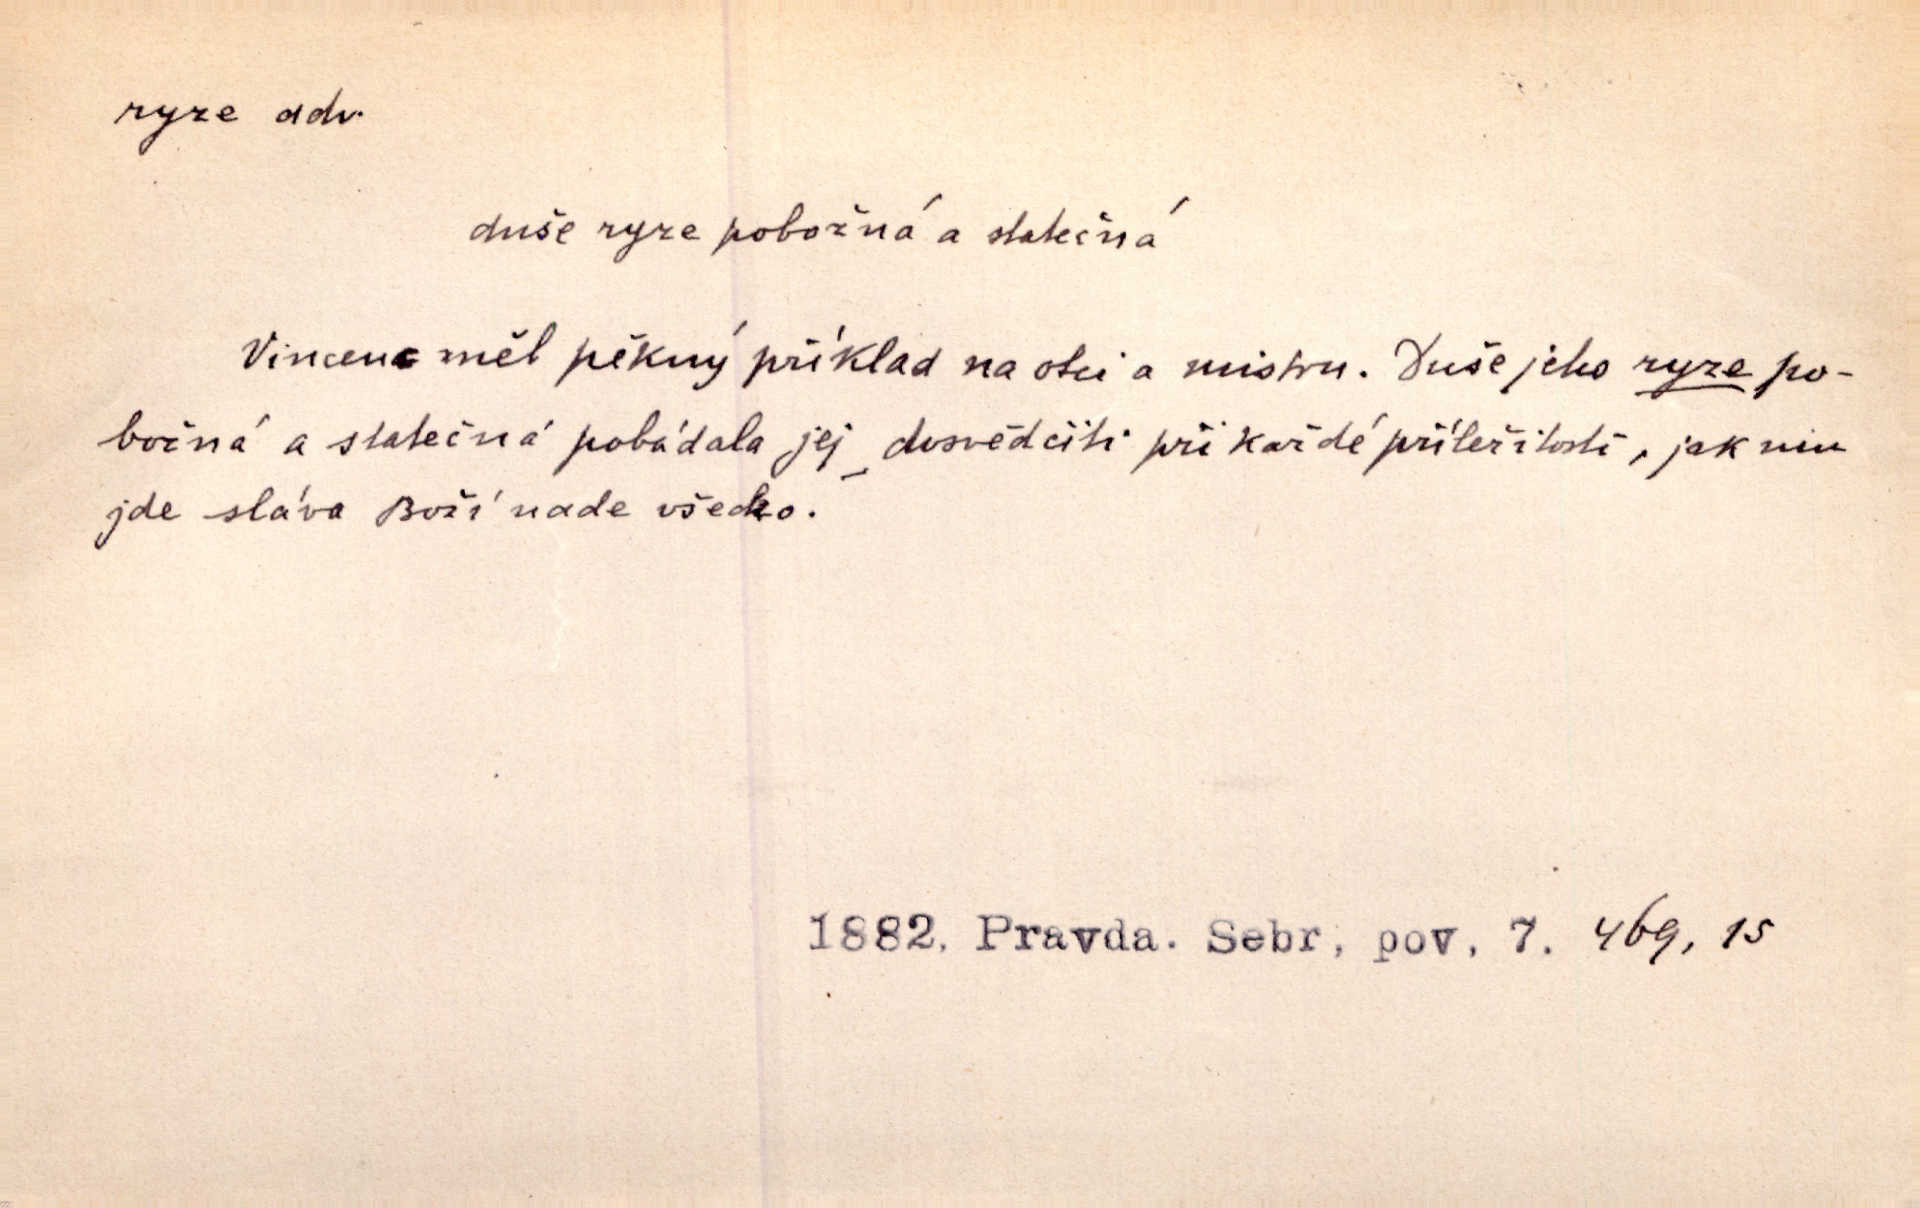 ryze adv.
duše ryze pobožná a statečná
Vincenc měl pěkný příklad na otci a mistru. Duše jeho ryze po-
božná a statečná pobádala jej dosvědčiti při každé příležitosti, jak mu
jde sláva Boží nade všecko.
1882. Pravda. Sebr. pov. 7. 469, 15